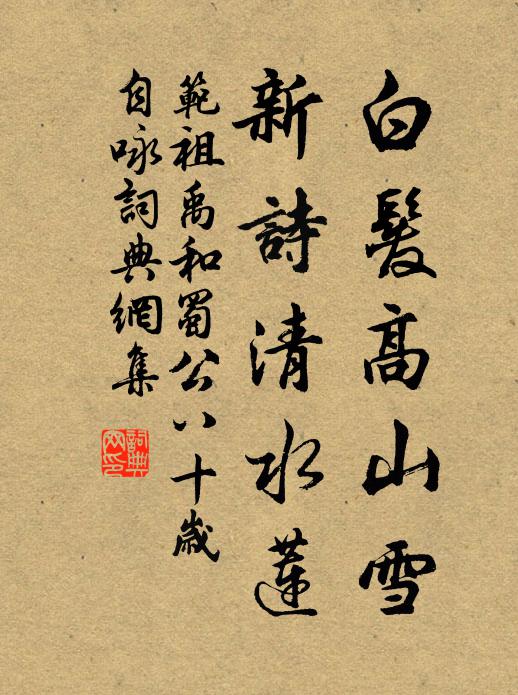 白髮高山雪
新詩清水蓮
範祖禹和蜀公八十歲
自咏詞典網集
詞典
網印